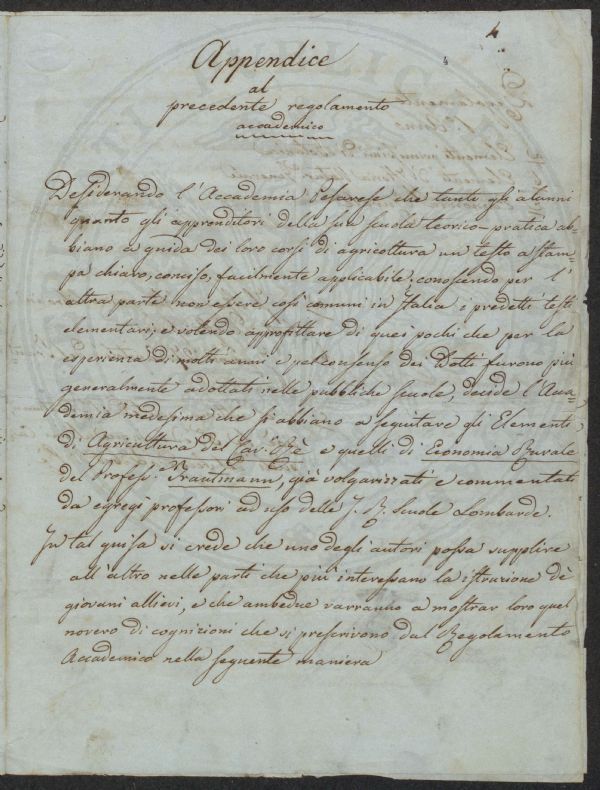 4
4
Appendice
al
precedente regolamento
accademico
Desiderando l'Accademia Pesarese che tanto gli alunni
quanto gli apprenditori della sua scuola teorico-pratica ab=
biano a guida dei loro corsi di agricoltura un testo a stam
pa chiaro, conciso, facilmente applicabile; conoscendo per l'
altra parte non essere così comuni in Italia i predetti testi
elementari; e volendo approfittare di quei pochi che per la
esperienza di molti anni e pel consenso dei Dotti furono più
generalmente adottati nelle pubbliche scuole, decide l'Acca=
demia medesima che si abbiano a seguitare gli Elementi
di Agricultura del Cav. Rè e quelli di Economia Rurale
del Profess. Trautmann, già volgarizzati e commentati
da egregj professori ad uso delle I. R. Scuole Lombarde.
In tal guisa si crede che uno degli autori possa supplire
all'altro nelle parti che più interessano la istruzione dè
giovani allievi, e che ambedue varranno a mostrar loro quel
novero di cognizioni che si prescrivono dal Regolamento
Accademico nella seguente maniera